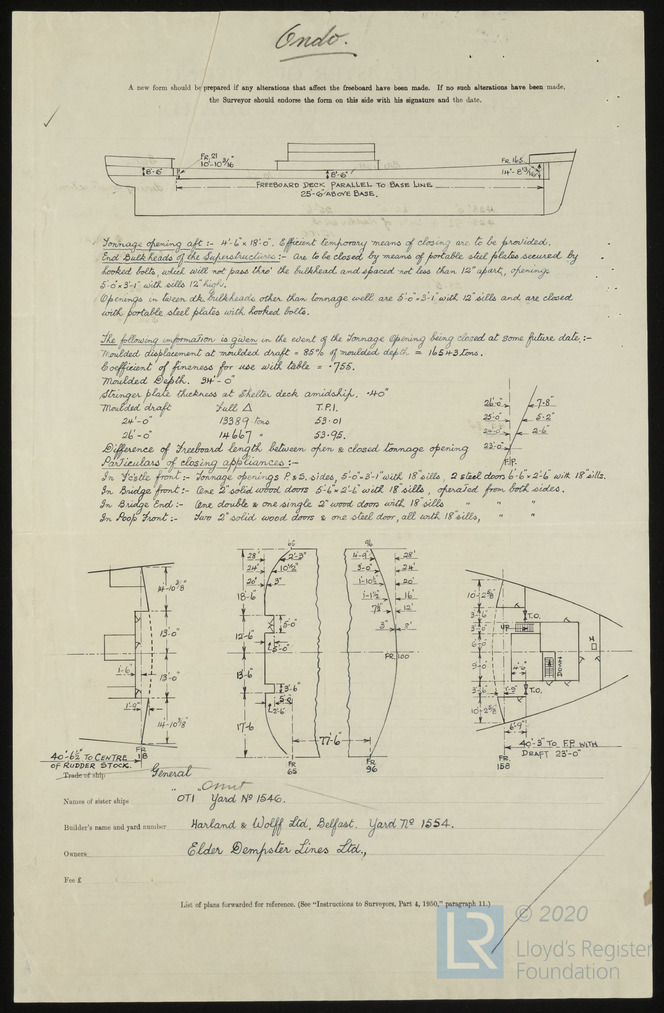 Ondo.
A new form should be prepared if any alterations that affect the freeboard have been made. If no such alterations have been made,
the Surveyor should endorse the form on this side with his signature and the date.
FR. 21
10'-10 3/16"
8'-6"
8'-6"
FR. 165
14'-8
FREEBOARD DECK PARALLEL TO BASE LINE
25'-6" ABOVE BASE.
Tonnage opening aft :- 4'-6" x 18'-0". Efficient temporary means of closing are to be provided.
End Bulkheads of the Superstructures :- are to be closed by means of portable steel plates secured by
hooked bolts, which will not pass thro' the bulkhead and spaced not less than 12" apart, openings
5'-0" x 3'-1" with sills 12" high.
Openings in tween dk. bulkheads other than tonnage well are 5'-0" x 3'-1" with 12" sills and are closed
with portable steel plates with hooked bolts.
The following information is given in the event of the Tonnage Opening being closed at some future date :-
Moulded displacement at moulded draft = 85% of moulded depth = 16543 tons.
Coefficient of fineness for use with table = .755.
Moulded Depth. 34'-0"
Stringer plate thickness at Shelter deck amidship. .40"
Moulded draft Full Δ T.P.I.
24'-0" 13389 tons 53.01
26'-0" 14667 " 53.95.
26'-0" 7'-8"
25'-0" 5'-2"
2'-6"
23'-0"
F.P.
Difference of Freeboard length between open & closed tonnage opening
Particulars of closing appliances :-
In Fc'stle front :- Tonnage openings P. & S. sides, 5'-0" x 3'-1" with 18" sills, 2 steel doors 6'-6" x 2'-6" with 18" sills.
In Bridge front :- One 2" solid wood doors 5'-6" x 2'-6" with 18" sills, operated from both sides.
In Bridge End :- One double & one single 2" wood doors with 18" sills " "
In Poop Front :- Two 2" solid wood doors & one steel door, all with 18" sills, " "
14'-10 3/8"
13'-0"
13'-0"
14'-10 3/8"
1'-6"
1'-9"
FR. 18
40'-6½" TO CENTRE
OF RUDDER STOCK.
65
28' 2'-3"
24' 10½"
20' 3"
18'-6"
12'-6"
5'-0"
5'-0"
13'-6"
3'-6"
5'-0
2'-6"
17'-6
77'-6"
FR
65
96
4'-9" 28'
3'-0" 24'
1'-10½ 20'
1'-1½" 16'
7½" 12'
3" 9'
FR. 100
FR
96
10'-2 5/8"
3'-6
T.O.
UP
DOWN
H
9'-0"
3'-6"
1'-9"
T.O.
10'-2 5/8"
6'-9"
FR.
158
40'-3" TO F.P. WITH
DRAFT 23'-0"
Trade of ship General
Names of sister ships OTI Yard Nº 1546.
Builder's name and yard number Harland & Wolff Ltd, Belfast. Yard Nº 1554.
Owners Elder Dempster Lines Ltd.,
Fee £
List of plans forwarded for reference. (See "Instructions to Surveyors, Part 4, 1950," paragraph 11.)
LR
© 2020
Lloyd's Register
Foundation